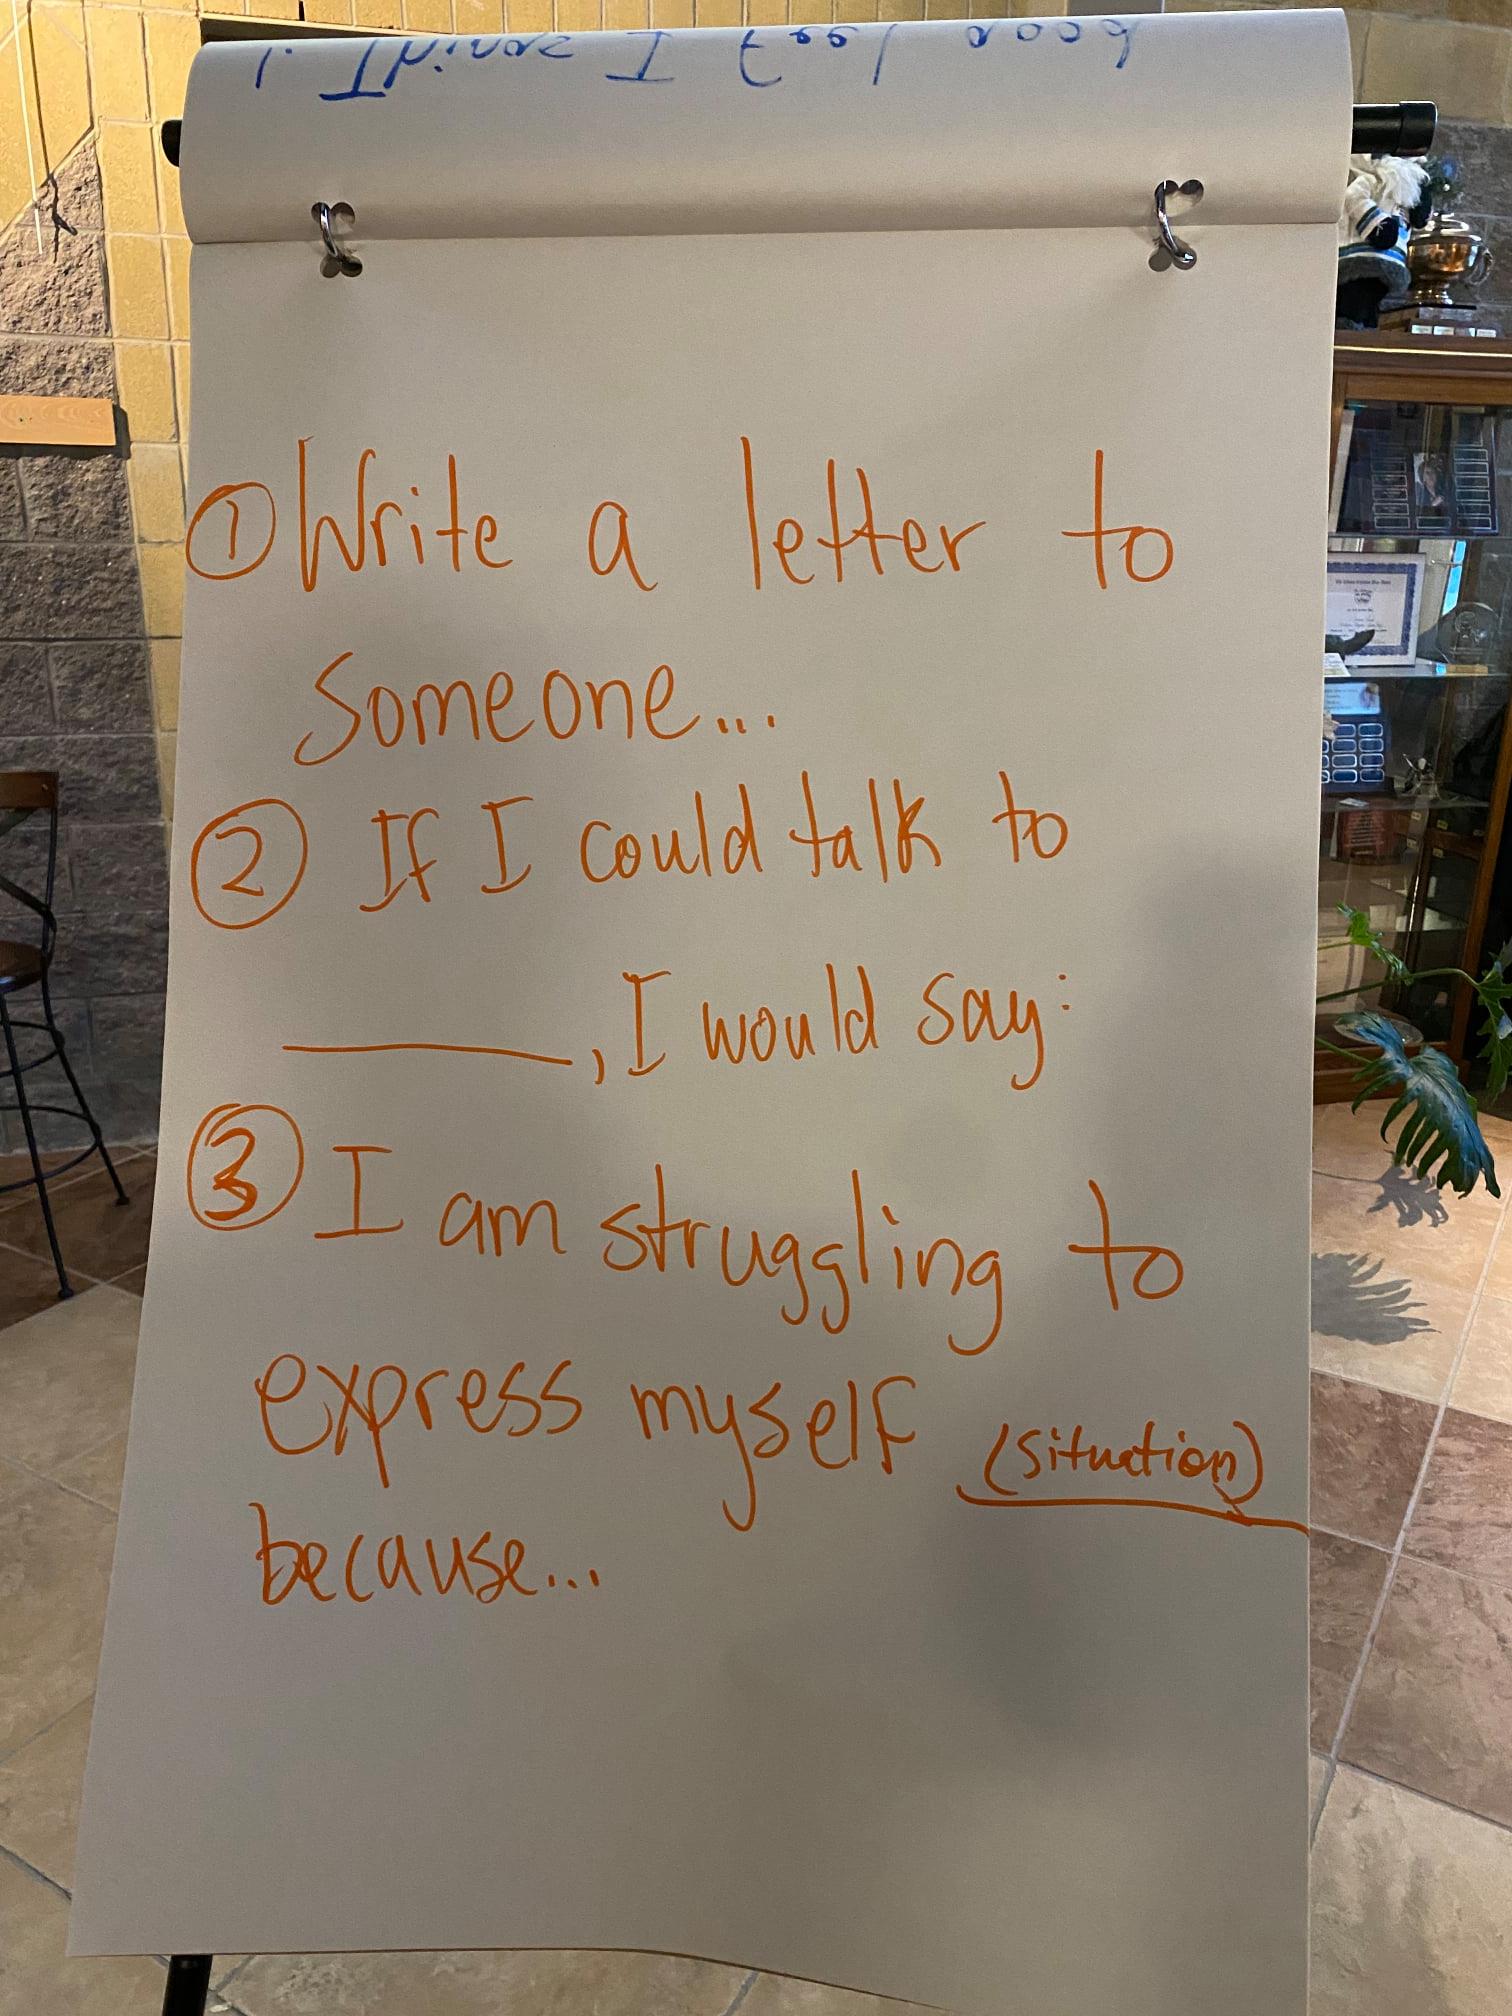 1. Things I feel good
① Write a letter to
someone...
② If I could talk to
______, I would say:
③ I am struggling to
express myself (situation)
because...